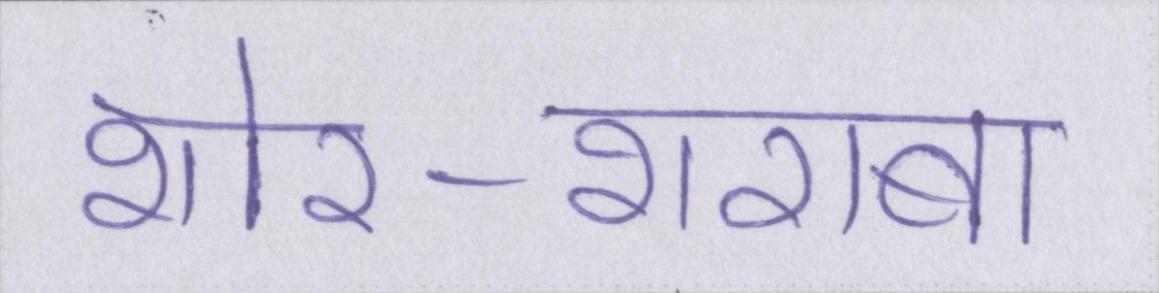 शोर-शराबा